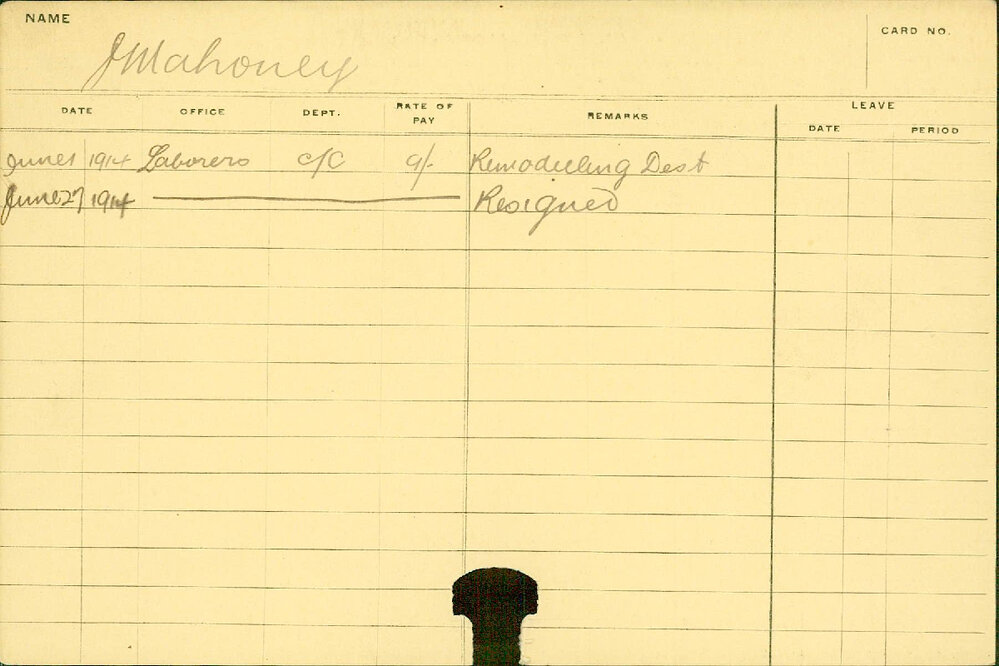 NAME
CARD NO.
J Mahoney
DATE OFFICE DEPT. RATE OF PAY REMARKS LEAVE
DATE PERIOD
June 1 1914 Laborers c/C 9/- Remodelling Dest
June 27 1914 Resigned